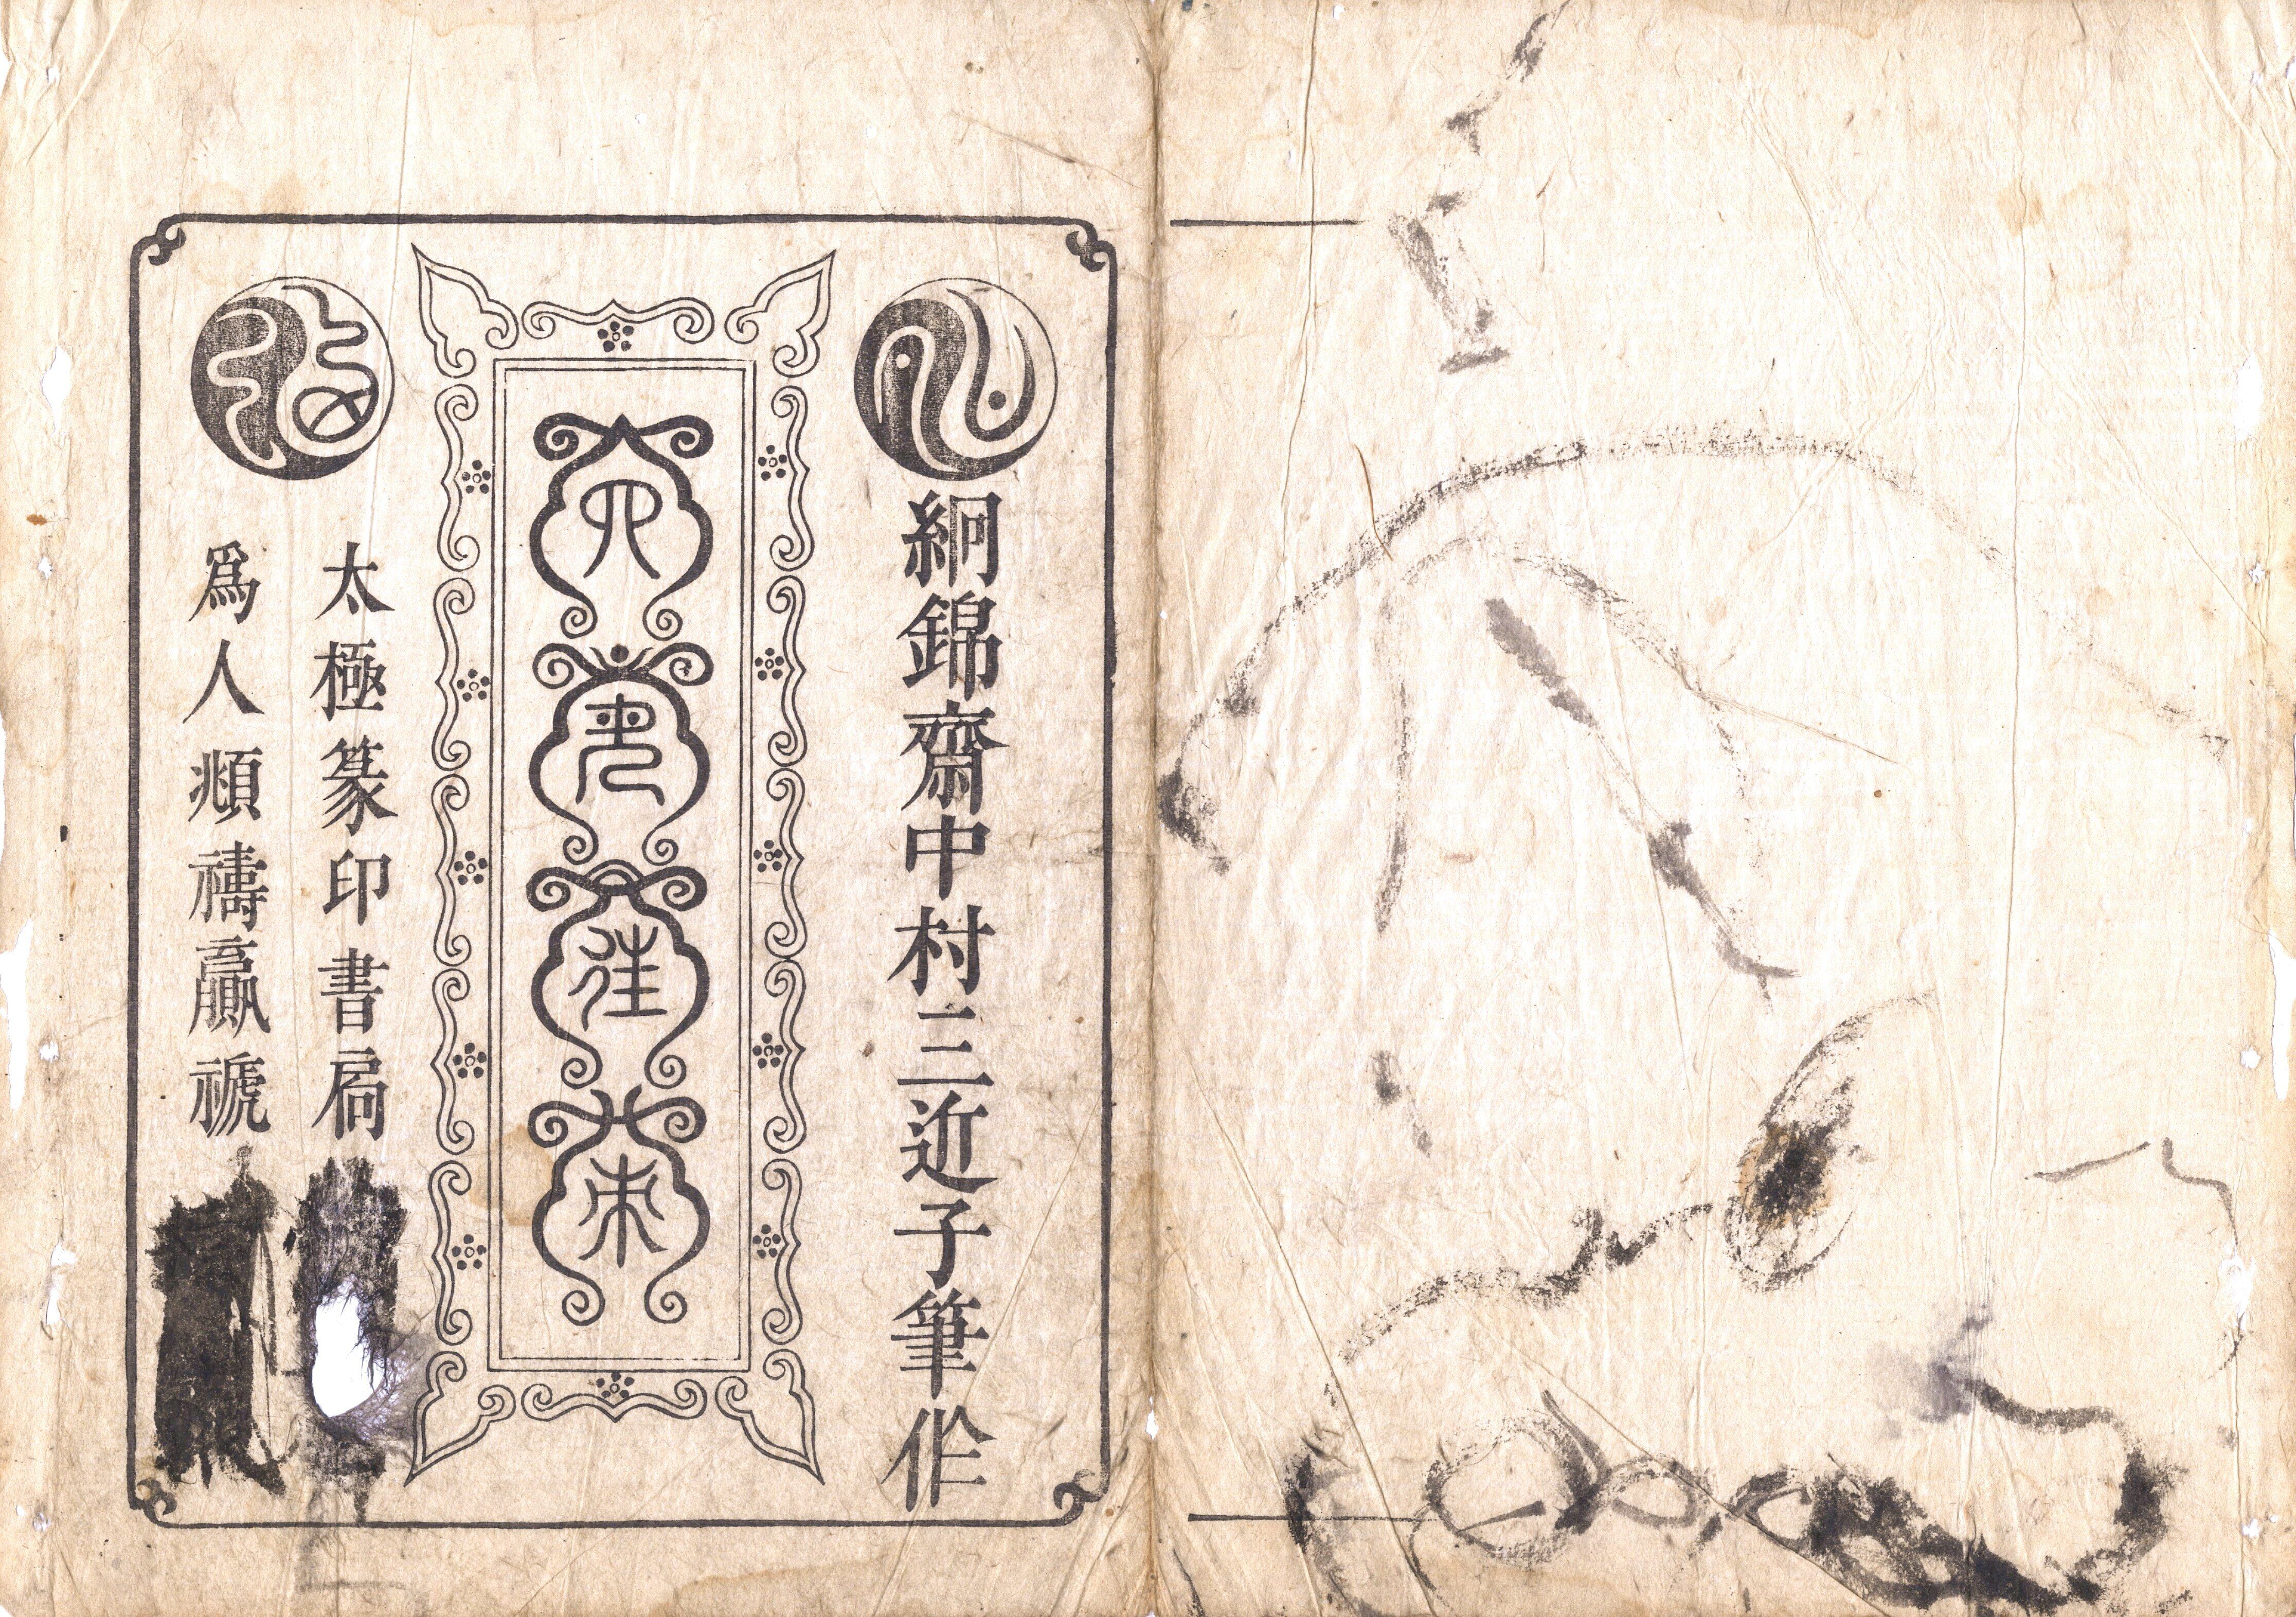 絅錦齋中村三近子筆作
六書往来
太極篆印書局
爲人頫禱贏禠